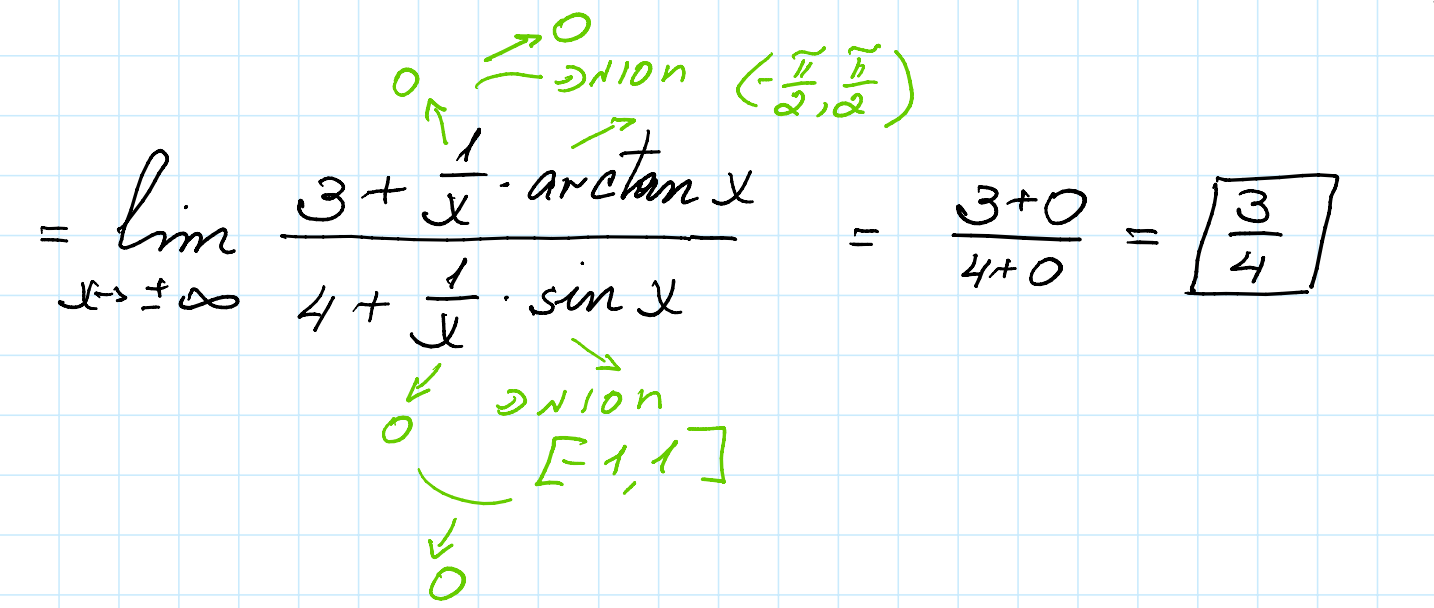 0
0 חסומה (-π/2, π/2)
= lim x→±∞ (3 + 1/x · arctan x) / (4 + 1/x · sin x) = (3+0)/(4+0) = 3/4
0 חסומה
[-1, 1]
0